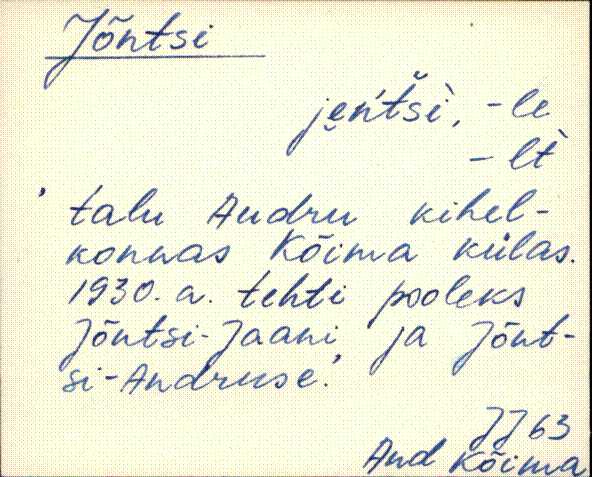 Jõntsi
je̮ńtšì̬, -le
-lt̀
'talu Audru kihel-
konnas Kõima külas.
1930. a. tehti pooleks
Jõntsi-Jaani ja Jõnt-
si-Andruse.'
JJ 63
Aud Kõima